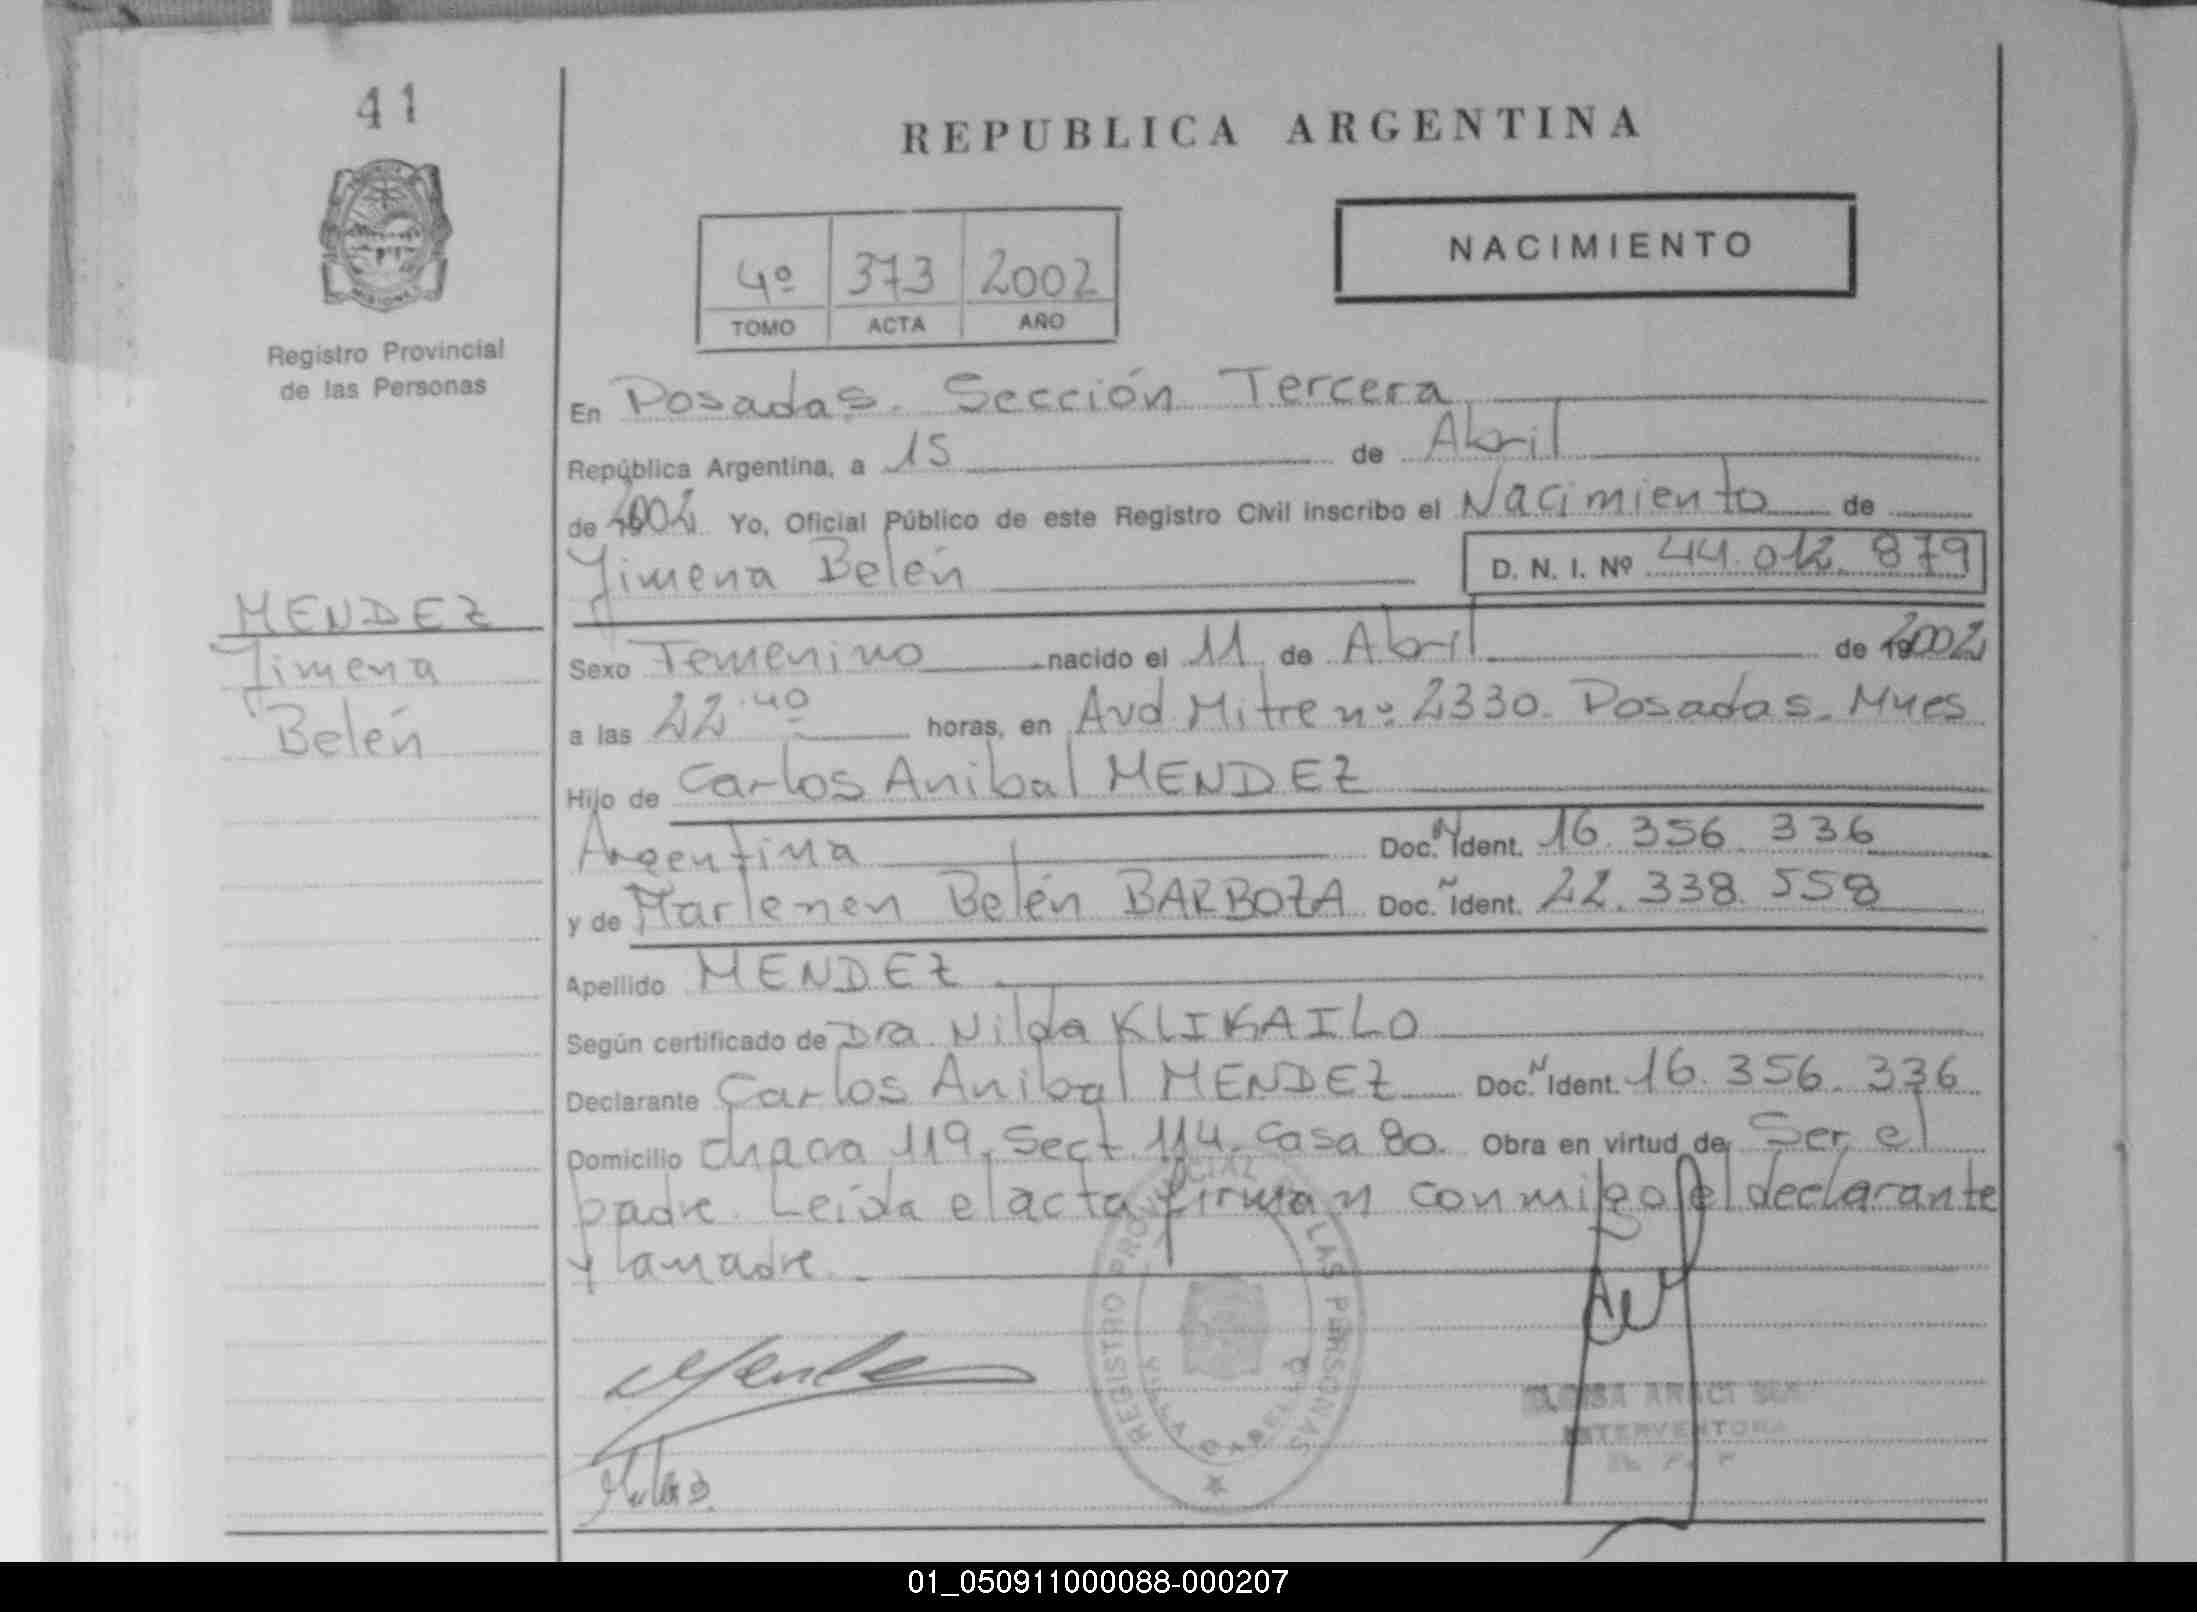 41
REPUBLICA ARGENTINA
NACIMIENTO
4º 373 2002
TOMO ACTA AÑO
Registro Provincial
de las Personas
En Posadas. Sección Tercera
República Argentina, a 15 de Abril
de 2002 Yo, Oficial Público de este Registro Civil inscribo el Nacimiento de
Jimena Belén D. N. I. Nº 44.012.879
MENDEZ
Jimena
Belén
Sexo Femenino nacido el 11 de Abril de 2002
a las 22.40 horas, en Avd Mitre nº 2330. Posadas. Mnes
Hijo de Carlos Anibal MENDEZ
Argentina Doc. N Ident. 16.356.336
y de Marlenen Belén BARBOZA Doc. N Ident. 22.338.558
Apellido MENDEZ
Según certificado de Dra Nilda KLIKAILO
Declarante Carlos Anibal MENDEZ Doc. N Ident. 16.356.336
Domicilio chacra 119. Sect 114. Casa 80. Obra en virtud de Ser el
padre. Leída el acta firman conmigo el declarante
y la madre.
REGISTRO PROVINCIAL LAS PERSONAS
VILLA CABELLO
ARACI
INTERVENTORA
01_050911000088-000207